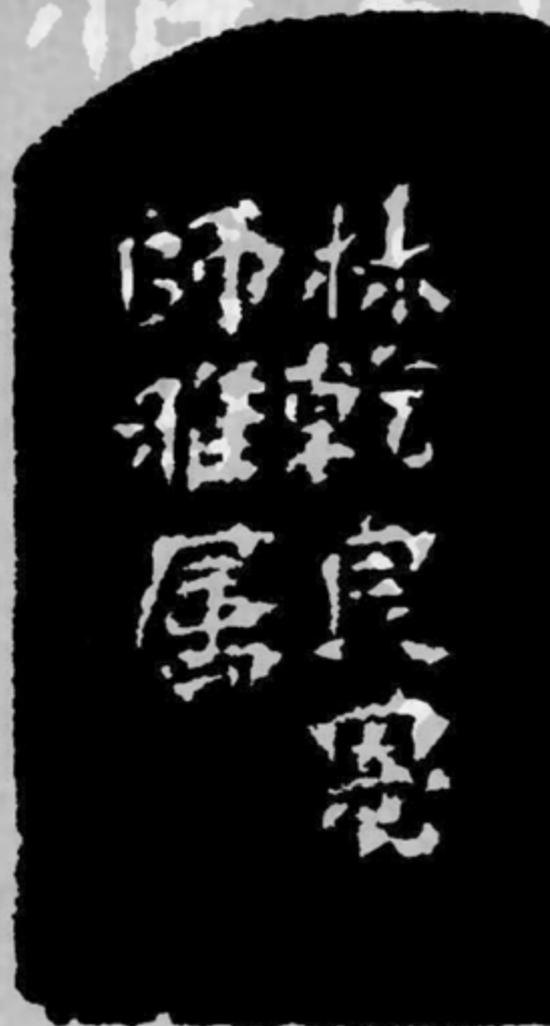 林乾良恩
師雅属